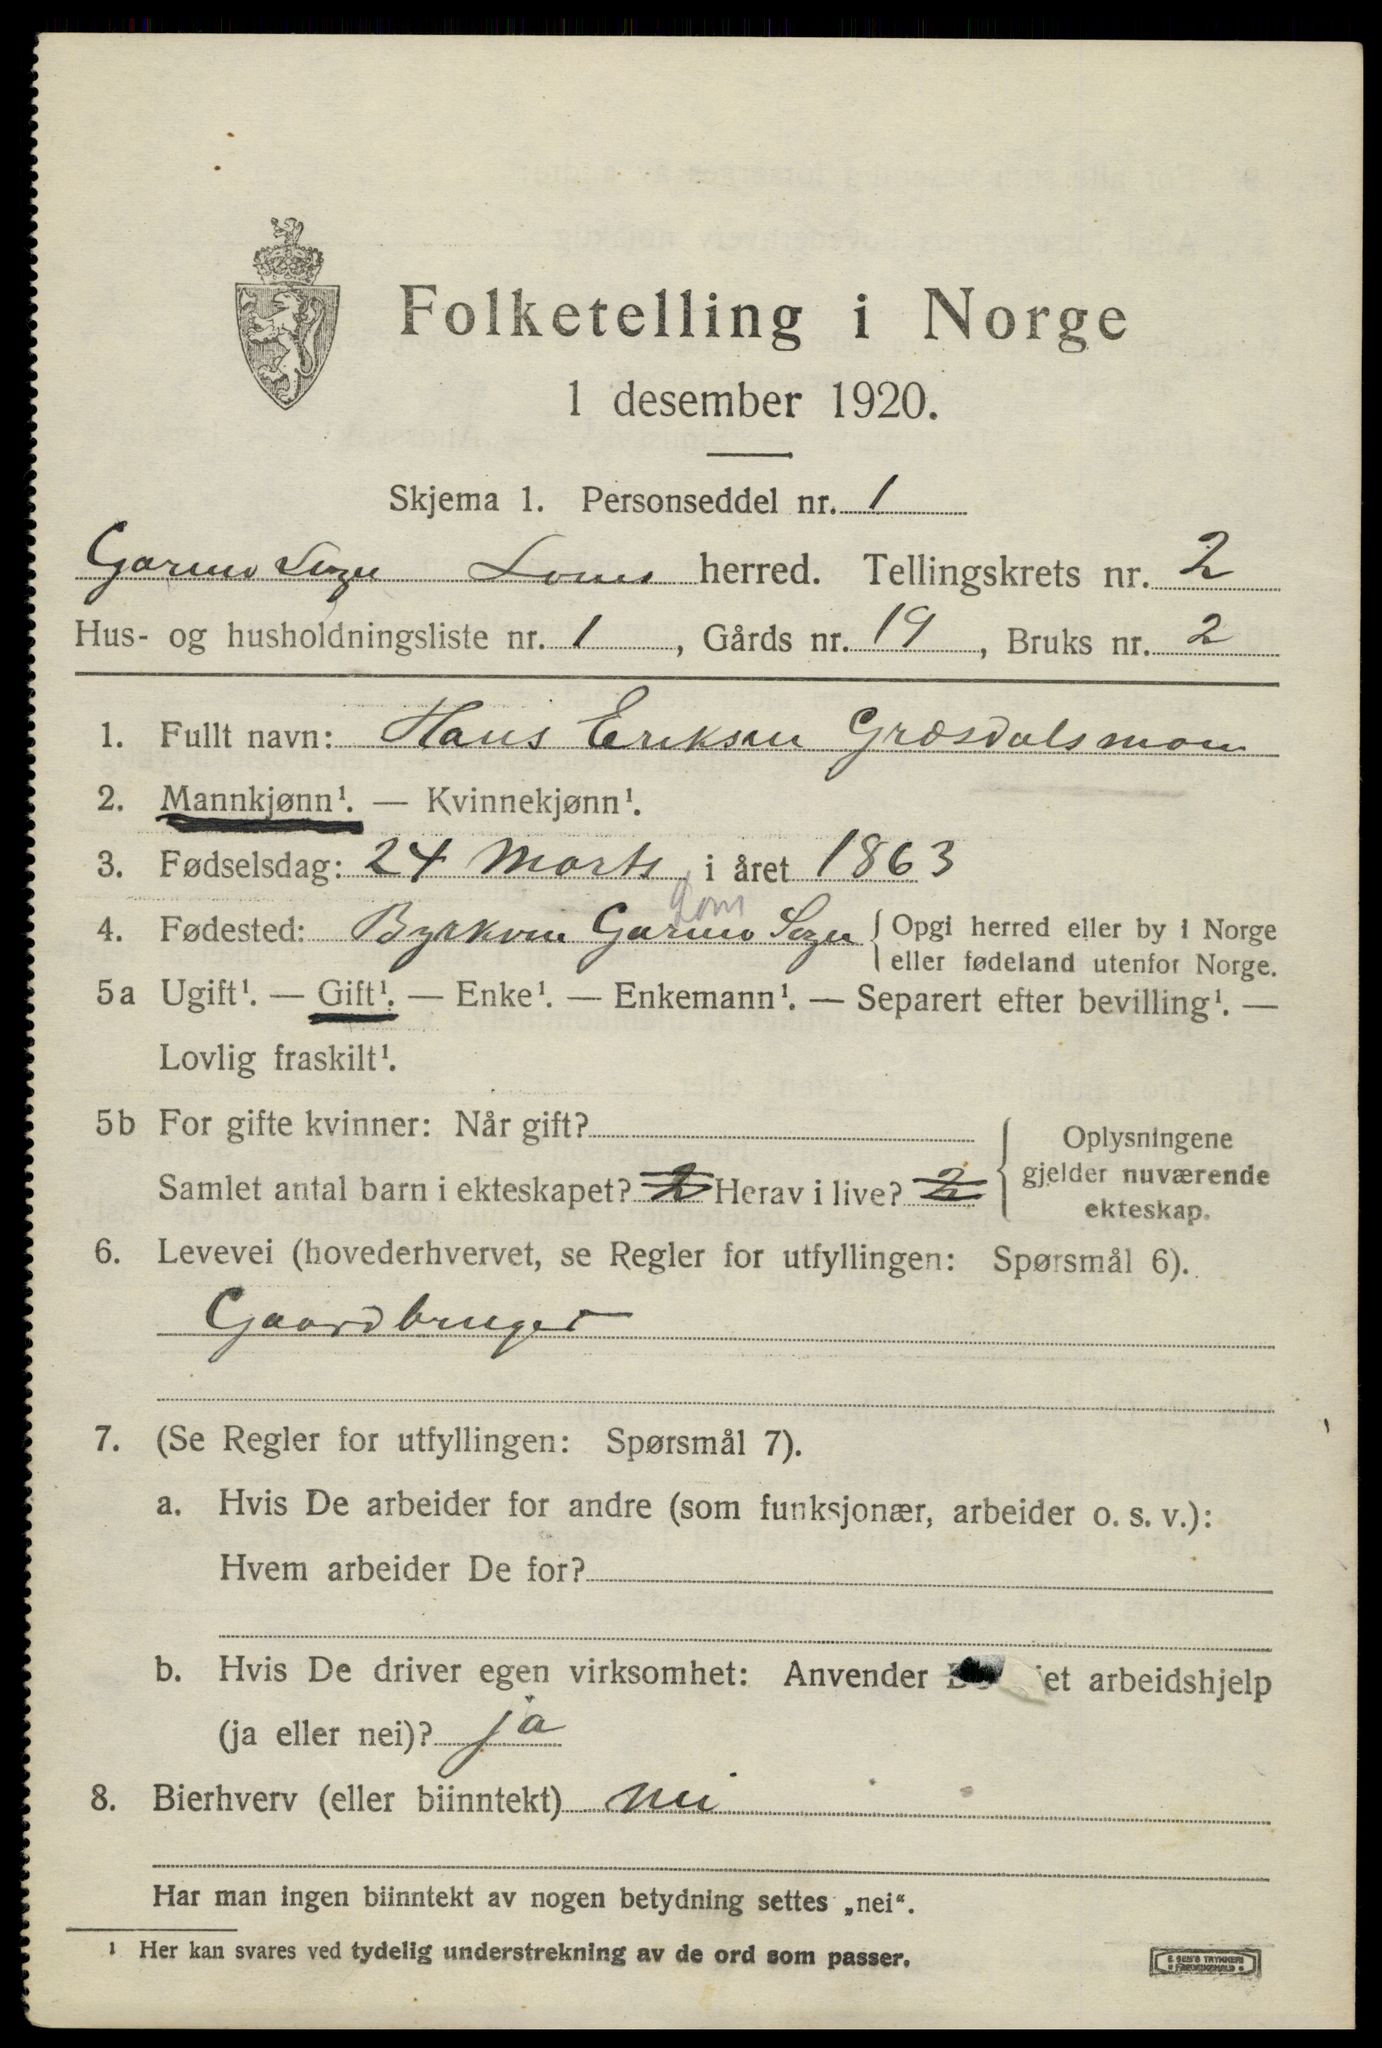 Folketelling i Norge
1 desember 1920.
Skjema 1. Personseddel nr. 1
Garmo Sogn Loms herred. Tellingskrets nr. 2
Hus- og husholdningsliste nr. 1, Gårds nr. 19, Bruks nr. 2
1. Fullt navn: Hans Eriksen Græsdalsmoen
2. Mannkjønn¹. — Kvinnekjønn¹.
3. Fødselsdag: 24 Marts i året 1863
Lom
4. Fødested: Garmo Sogn { Opgi herred eller by i Norge
eller fødeland utenfor Norge.
5a Ugift¹. — Gift¹. — Enke¹. — Enkemann¹. — Separert efter bevilling¹. —
Lovlig fraskilt¹.
5b For gifte kvinner: Når gift?
Samlet antal barn i ekteskapet? 2 Herav i live? 2
Oplysningene
gjelder nuværende
ekteskap.
6. Levevei (hovederhvervet, se Regler for utfyllingen: Spørsmål 6).
Gaardbruger
7. (Se Regler for utfyllingen: Spørsmål 7).
a. Hvis De arbeider for andre (som funksjonær, arbeider o. s. v.):
Hvem arbeider De for?
b. Hvis De driver egen virksomhet: Anvender et arbeidshjelp
(ja eller nei)? ja
8. Bierhverv (eller biinntekt) nei
Har man ingen biinntekt av nogen betydning settes „nei“.
¹ Her kan svares ved tydelig understrekning av de ord som passer.